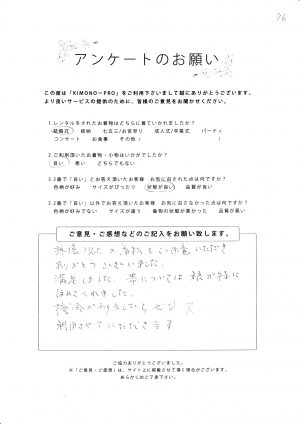 76
アンケートのお願い
この度は「KIMONO－PRO」をご利用下さいまして誠にありがとうございます。
より良いサービスの提供のために、皆様のご意見をお聞かせください。
1.レンタルをされたお着物はどちらに着ていかれましたか?
結婚式 結納 七五三/お宮参り 成人式/卒業式 パーティ
コンサート お食事 その他( )
2.ご利用頂いたお着物・小物はいかがでしたか?
良い 悪い どちらでもない
3.2番で「良い」とお答え頂いたお客様 お気に召された点は何ですか?
色柄が好み サイズがぴったり 状態が良い 品質が良い
3.2番で「良い」以外でお答え頂いたお客様 お気にさなかった点は何ですか?
色柄が好みでない サイズが違う 着物の状態が悪かった 品質が悪い
ご意見・ご感想などのご記入をお願い致します。
想像以上の着物をご用意いただき
ありがとうございました。
満足しました。帯については娘が特に
ほめてくれました。
機会がありましたら ぜひ 又、
利用させていただきます
ご協力ありがとうございました。
※「ご意見・ご感想」は、サイト上に掲載させて頂く場合がございます。
あらかじめご了承下さい。